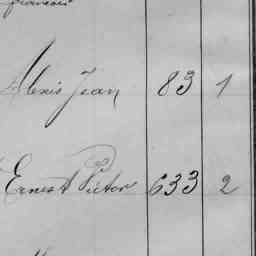 francois
Alexis Jean 83 1
Ernest Victor 633 2